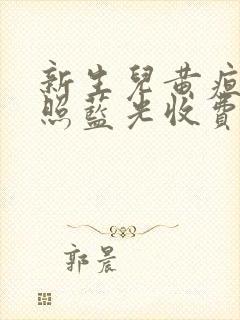 新生兒黃疸
照藍光收費
郭晨